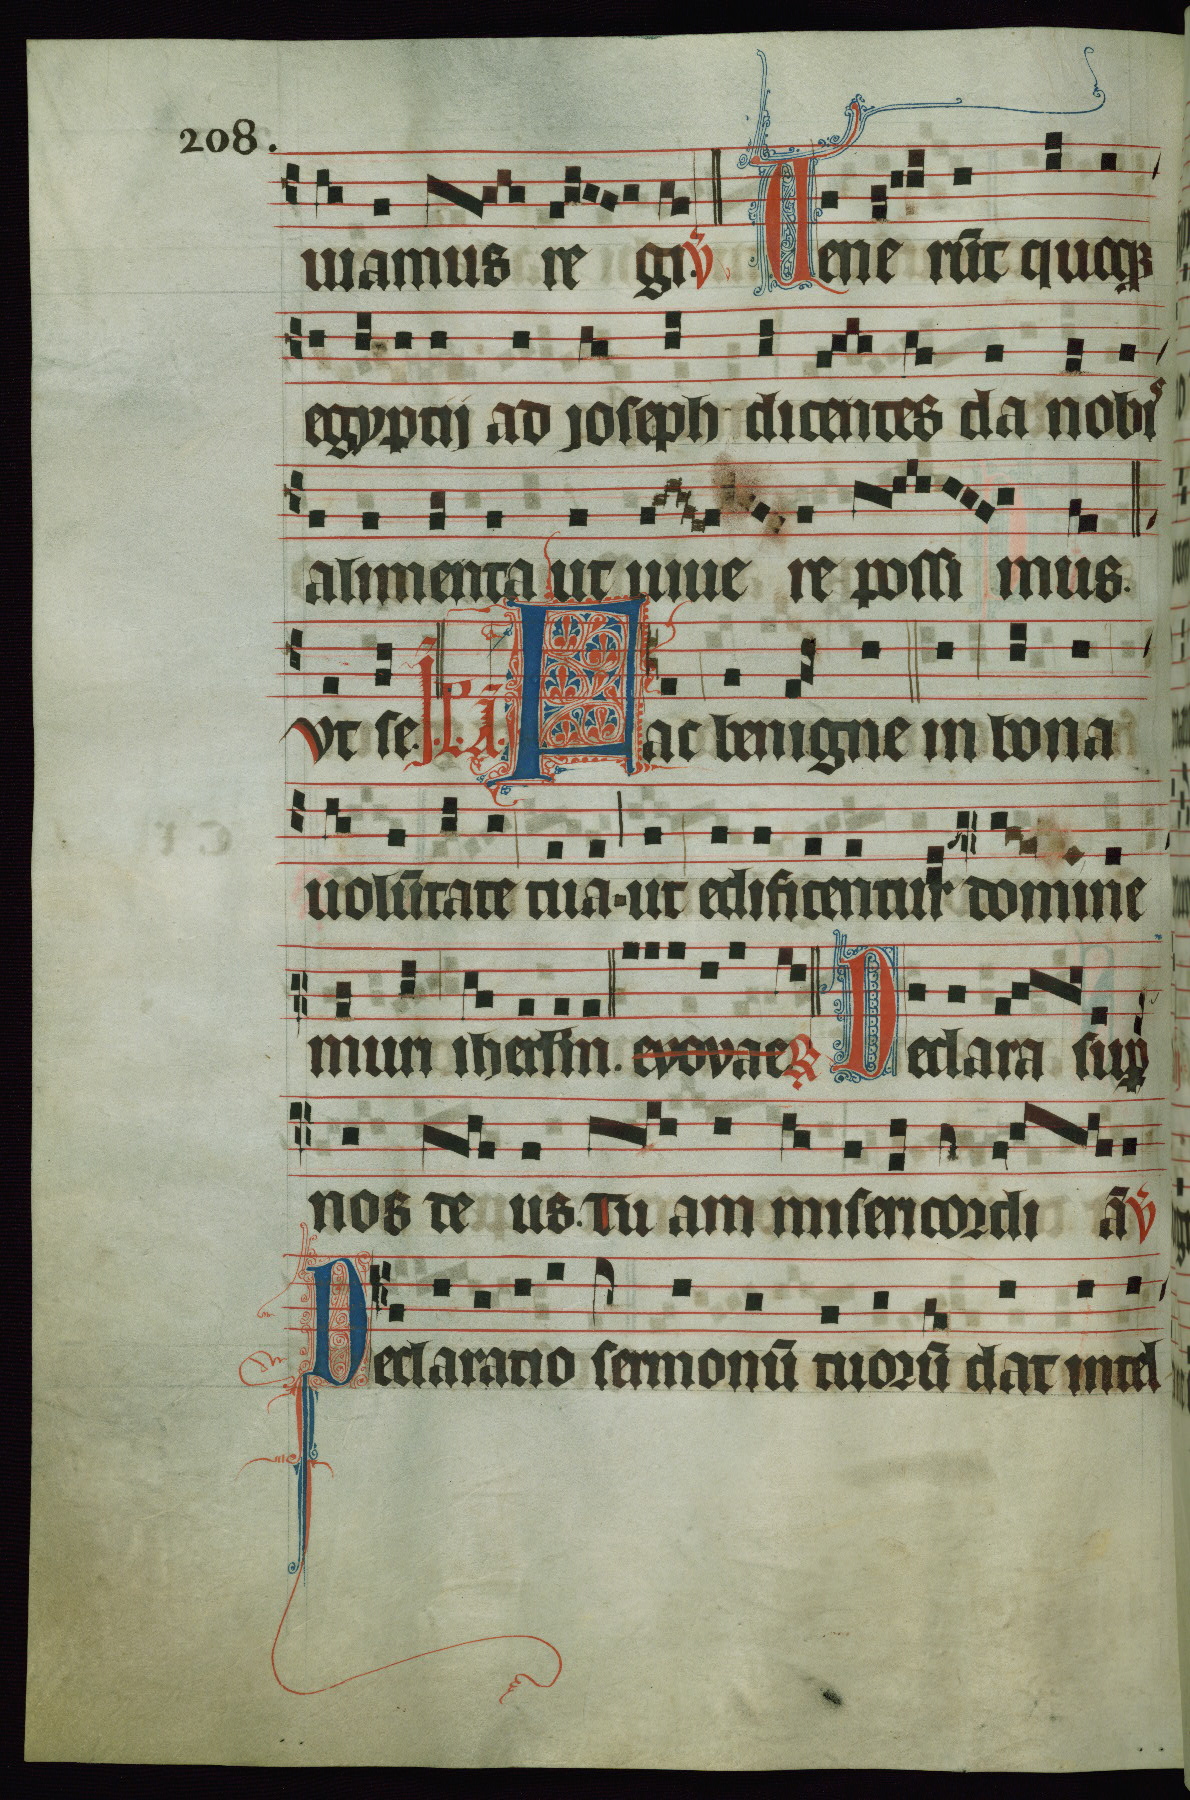 208.
uiamus re gi. v̄ Uene rūt quoqꝫ
egyptij ad joseph dicentes da nobis
alimenta ut uiue re possi mus.
vt se. Hac benigne in bona
uolūtate tua ut edificentur domine
muri iherlm. evovae ℟ Declara sup̱
nos de us. Tu am misericordi ā v̄
Declaratio sermonū tuorū dat intel